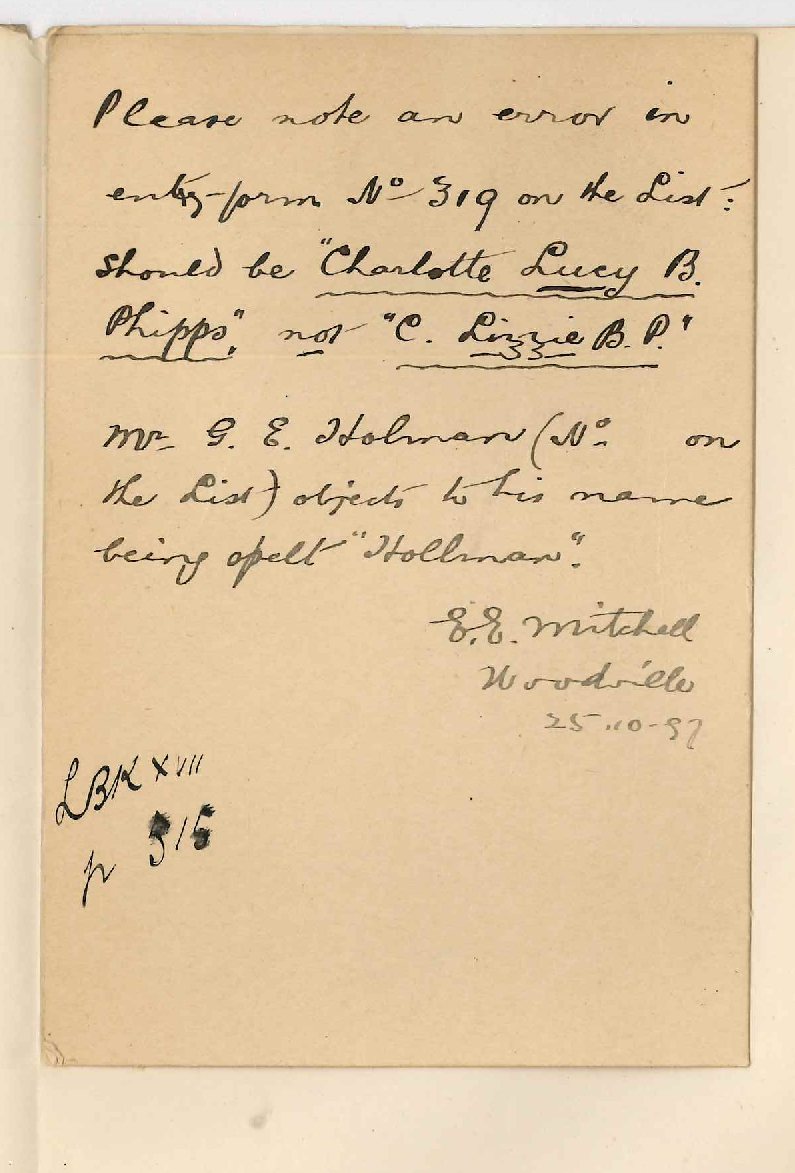 Please note an error in
entry-form No 319 on the List:
should be "Charlotte Lucy B.
Phipps", not "C. Lizzie B. P."
Mr G. E. Holman (No on
the List) objects to his name
being spelt "Hollman".
E. E. Mitchell
Woodville
25.10-97
LBK XVII
p 315